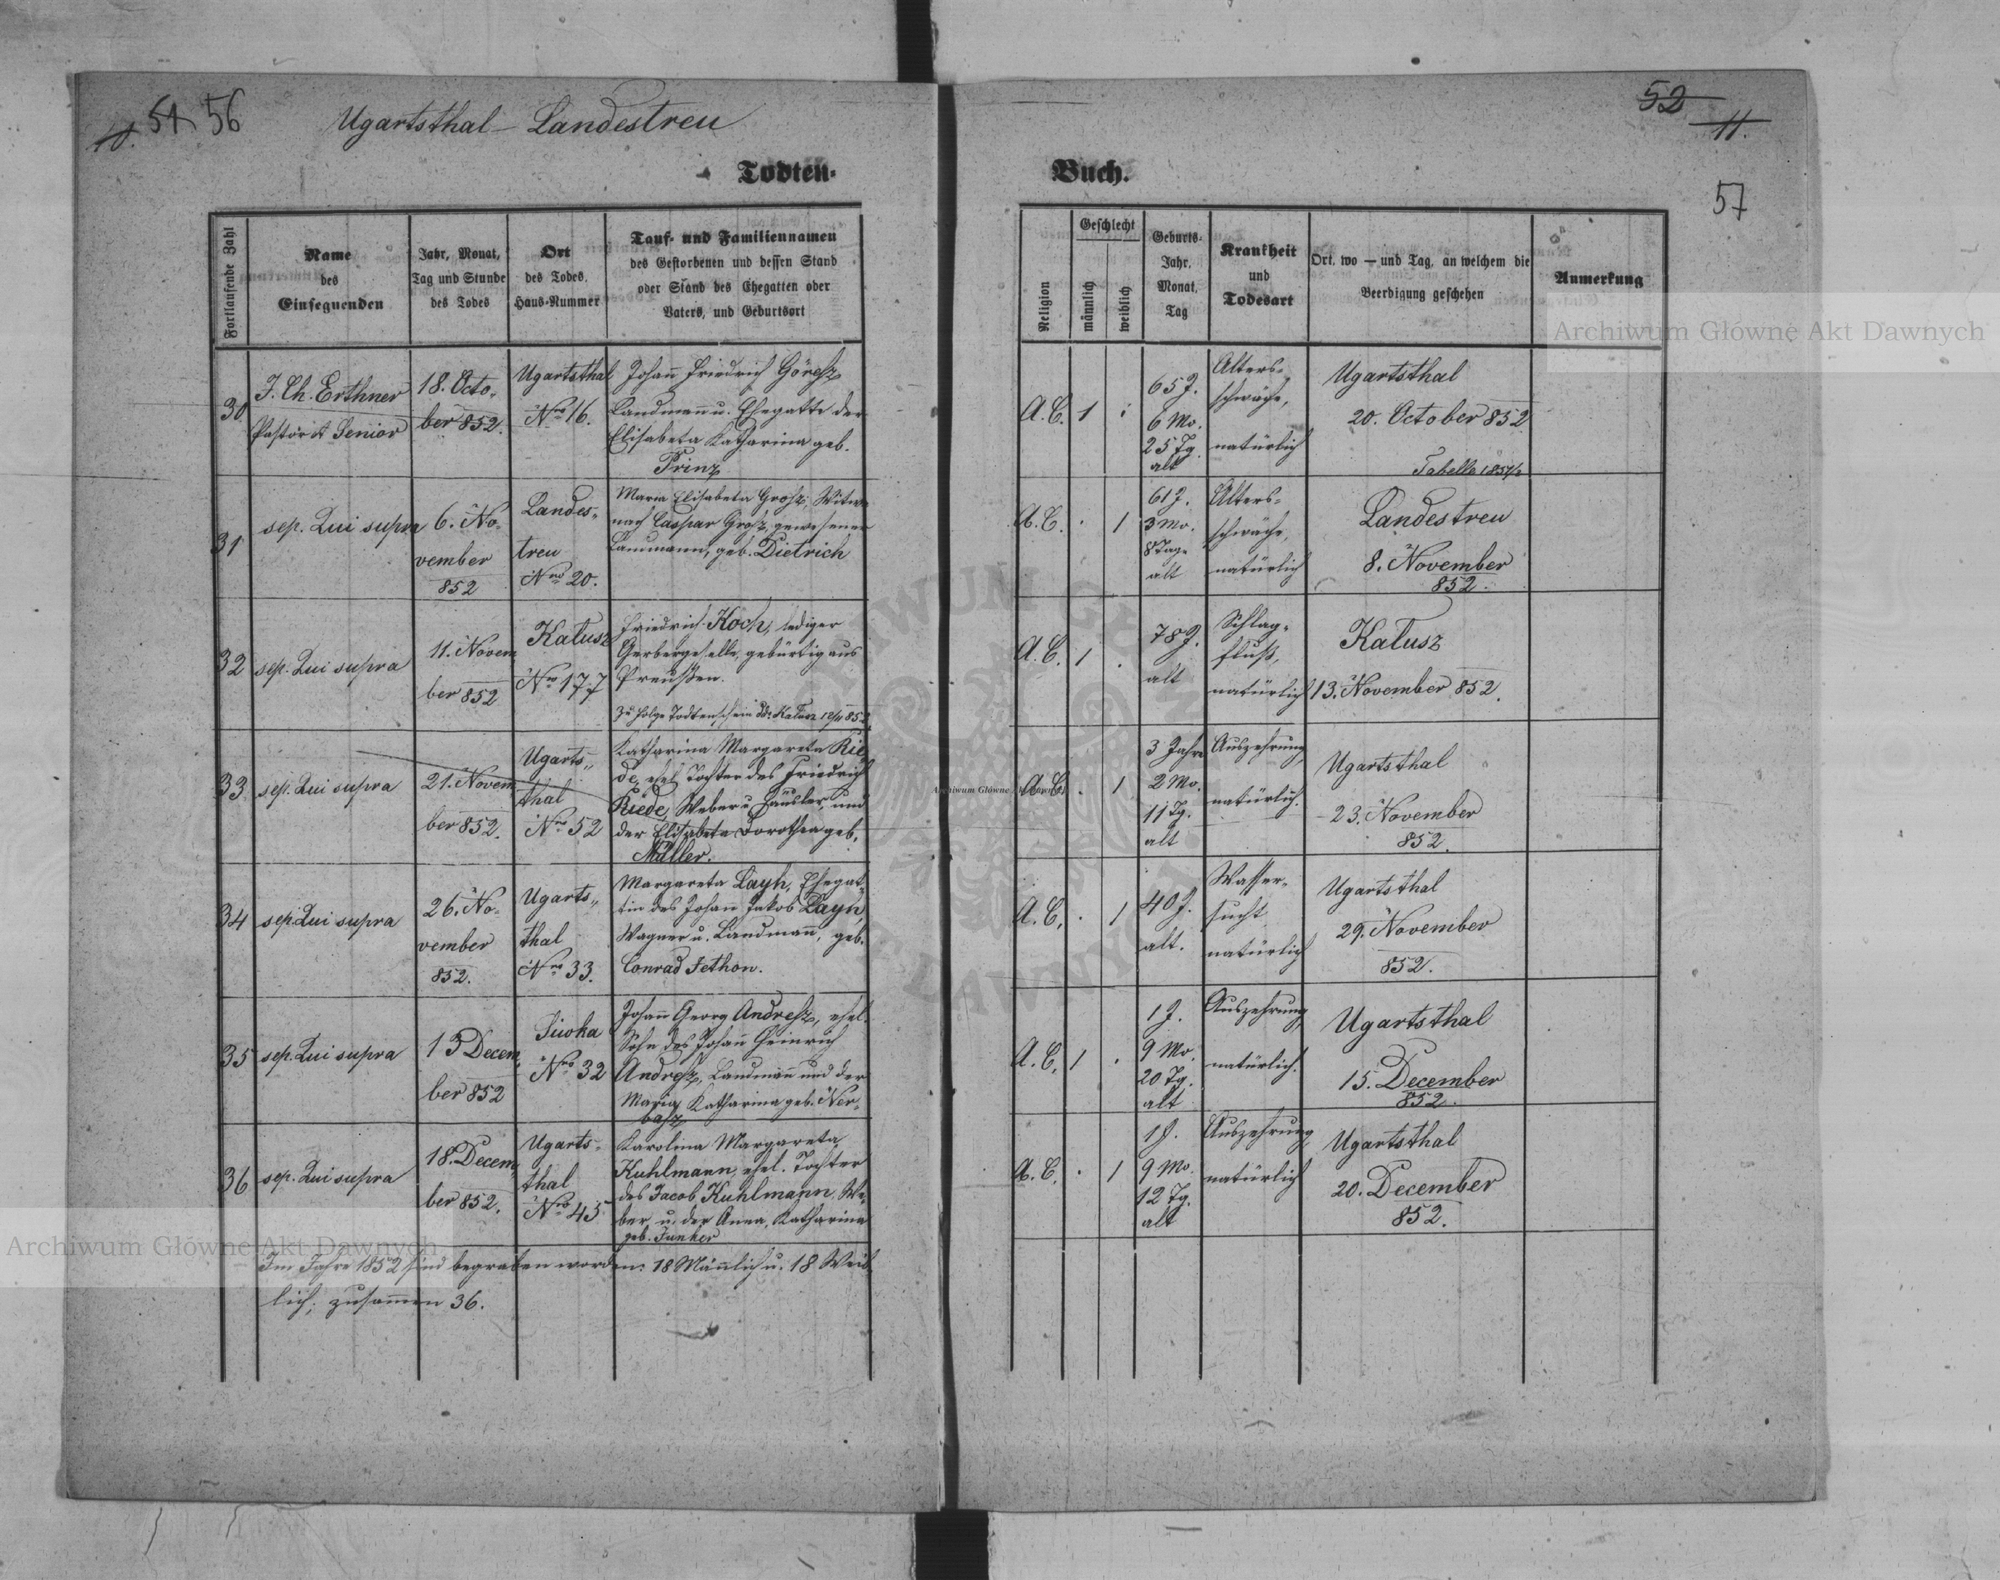 10. 51 56
Ugartsthal - Landestreu
52 11.
57
Todten-
Buch.
Fortlaufende Zahl
Name
des
Einsegnenden
Jahr, Monat,
Tag und Stunde
des Todes
Ort
des Todes.
Haus-Nummer
Tauf- und Familiennamen
des Gestorbenen und dessen Stand
oder Stand des Ehegatten oder
Vaters, und Geburtsort
Religion
Geschlecht
männlich
weiblich
Geburts-
Jahr.
Monat.
Tag
Krankheit
und
Todesart
Ort. wo — und Tag. an welchem die
Beerdigung geschehen
Anmerkung
30
J. Ch. Erthner
Pastor & Senior
18. Octo-
ber 852.
Ugartsthal
Nro 16.
Johann Friedrich Göresz
Landmann u. Ehegatte der
Elisabeta Katharina geb.
Prinz
A. C.
1
65 J.
6 Mo.
25 Tg.
alt
Alters-
schwäche,
natürlich
Ugartsthal
20. October 852
Tabelle 1851/2
31
sep. Qui supra
6. No-
vember
852
Landes-
treu
Nro 20.
Maria Elisabeta Grosz, Witwe
nach Caspar Grosz, gewesener
Landmann, geb. Dietrich
A. C.
1
61 J.
3 Mo.
8 Tage
alt
Alters-
schwäche,
natürlich
Landestreu
8. November
852.
32
sep. Qui supra
11. Novem
ber 852
Kalusz
Nro 177
Friedrich Koch, lediger
Gerbergeselle, gebürtig aus
Preußen.
Zu folge Todtenschein dd: Kalusz 12/11 852
A. C.
1
78 J.
alt
Schlag-
fluß,
natürlich
Kalusz
13. November 852.
33
sep. Qui supra
21. Novem
ber 852.
Ugarts-
thal
Nro 52
Katharina Margareta Rie-
de, ehel. Tochter des Friedrich
Riede, Weber u. Häusler, und
der Elisabeta Dorothea geb.
Müller.
A. C.
1
3 Jahre
2 Mo.
11 Tg.
alt
Auszehrung,
natürlich.
Ugartsthal
23. November
852.
34
sep. Qui supra
26. No-
vember
852.
Ugarts-
thal
Nro 33.
Margareta Layh, Ehegat-
tin des Johann Jakob Layh,
Wagner u. Landmann, geb.
Conrad Jethon.
A. C.
1
40 J.
alt.
Wasser-
sucht
natürlich
Ugartsthal
29. November
852.
35
sep. Qui supra
13 Decem-
ber 852
Siwka
Nro 32
Johann Georg Andresz, ehel.
Sohn des Johann Heinrich
Andresz, Landmann und der
Maria Katharina geb. Ner-
basz
A. C.
1
1 J.
9 Mo.
20 Tg.
alt
Auszehrung,
natürlich.
Ugartsthal
15. December
852.
36
sep. Qui supra
18. Decem-
ber 852.
Ugarts-
thal
Nro 45
Karolina Margareta
Kuhlmann, ehel. Tochter
des Jacob Kuhlmann, We-
ber u. der Anna Katharina
geb. Junker
A. C.
1
1 J.
9 Mo.
12 Tg.
alt
Auszehrung
natürlich
Ugartsthal
20. December
852.
Im Jahre 1852 sind begraben worden: 18 Männlich u. 18 Weib-
lich; zusammen 36.
Archiwum Główne Akt Dawnych
Archiwum Główne Akt Dawnych
Archiwum Główne Akt Dawnych